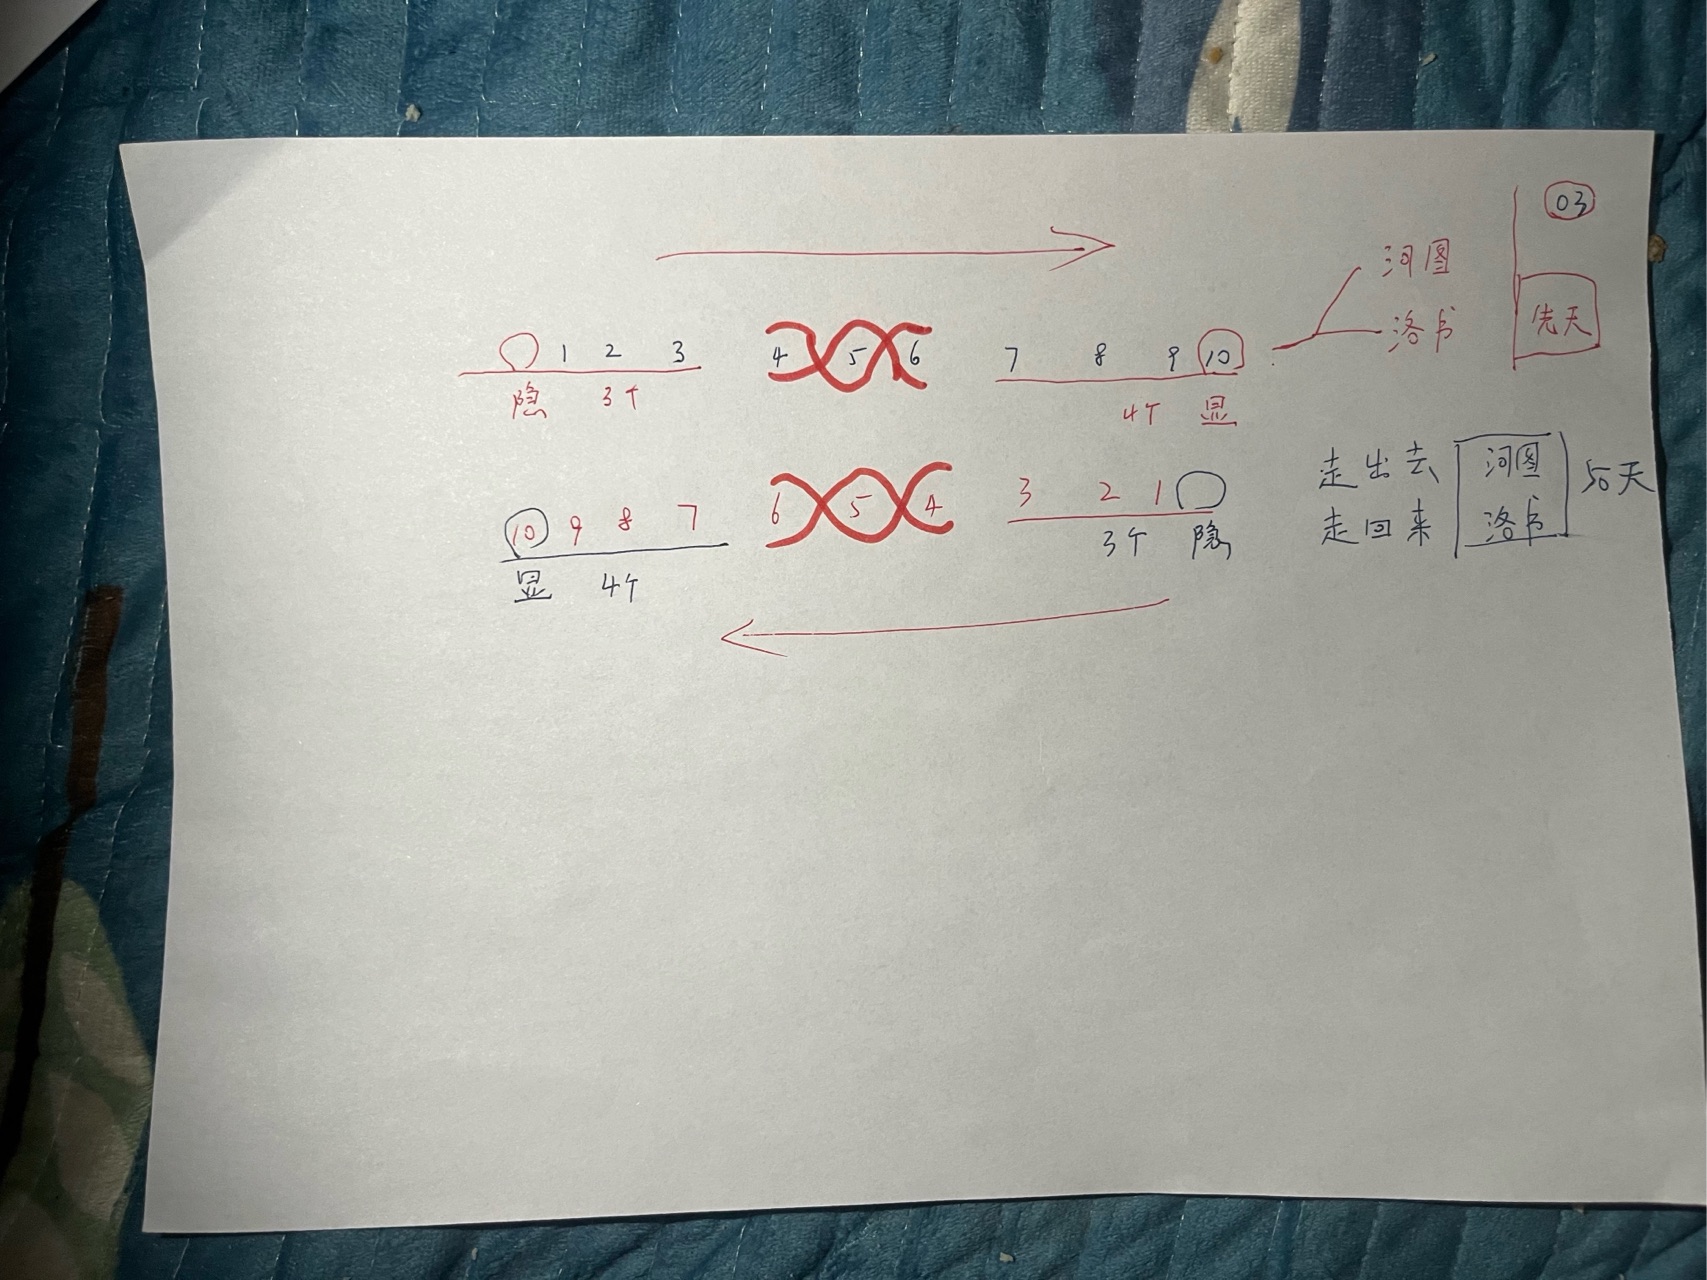 03
河图
洛书
先天
○ 1 2 3 4 5 6 7 8 9 10
隐 3个 4个 显
走出去 河图
走回来 洛书
后天
10 9 8 7 6 5 4 3 2 1 ○
显 4个 3个 隐